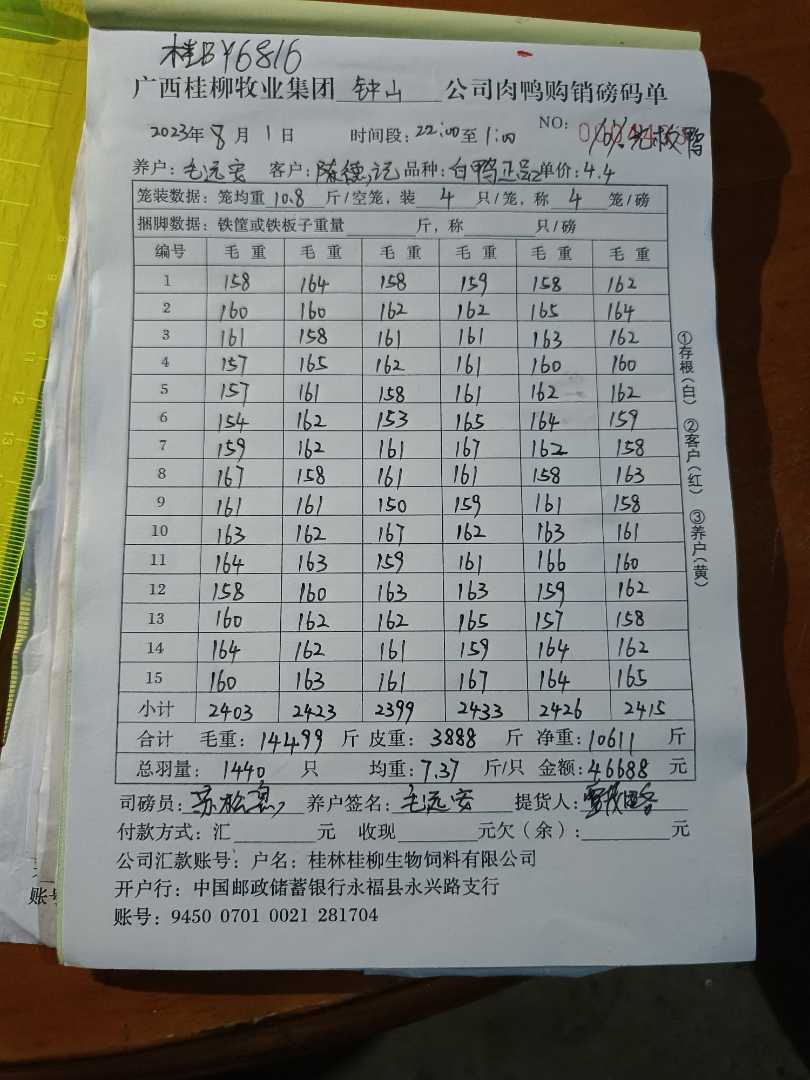 桂BY6816
广西桂柳牧业集团 钟山 公司肉鸭购销磅码单
2023年 8 月 1 日 时间段: 22:00至 1:00 NO:
养户: 毛远安 客户: 陈德记 品种: 白鸭正品 单价: 4.4
笼装数据: 笼均重 10.8 斤/空笼, 装 4 只/笼, 称 4 笼/磅
捆脚数据: 铁筐或铁板子重量 斤, 称 只/磅
编号 毛重 毛重 毛重 毛重 毛重 毛重
1 158 164 158 159 158 162
2 160 160 162 162 165 164
3 161 158 161 161 163 162
4 157 165 162 161 160 160
5 157 161 158 161 162 162
6 154 162 153 165 164 159
7 159 162 161 167 162 158
8 167 158 161 161 158 163
9 161 161 150 159 161 158
10 163 162 167 162 163 161
11 164 163 159 161 166 160
12 158 160 163 163 159 162
13 160 162 162 165 157 158
14 164 162 161 159 164 162
15 160 163 161 167 164 165
小计 2403 2423 2399 2433 2426 2415
合计 毛重: 14499 斤 皮重: 3888 斤 净重: 10611 斤
总羽量: 1440 只 均重: 7.37 斤/只 金额: 46688 元
司磅员: 养户签名: 毛远安 提货人:
付款方式: 汇 元 收现 元欠(余): 元
公司汇款账号: 户名: 桂林桂柳生物饲料有限公司
开户行: 中国邮政储蓄银行永福县永兴路支行
账号: 9450 0701 0021 281704
①存根(白) ②客户(红) ③养户(黄)
账号
10
11
12
13